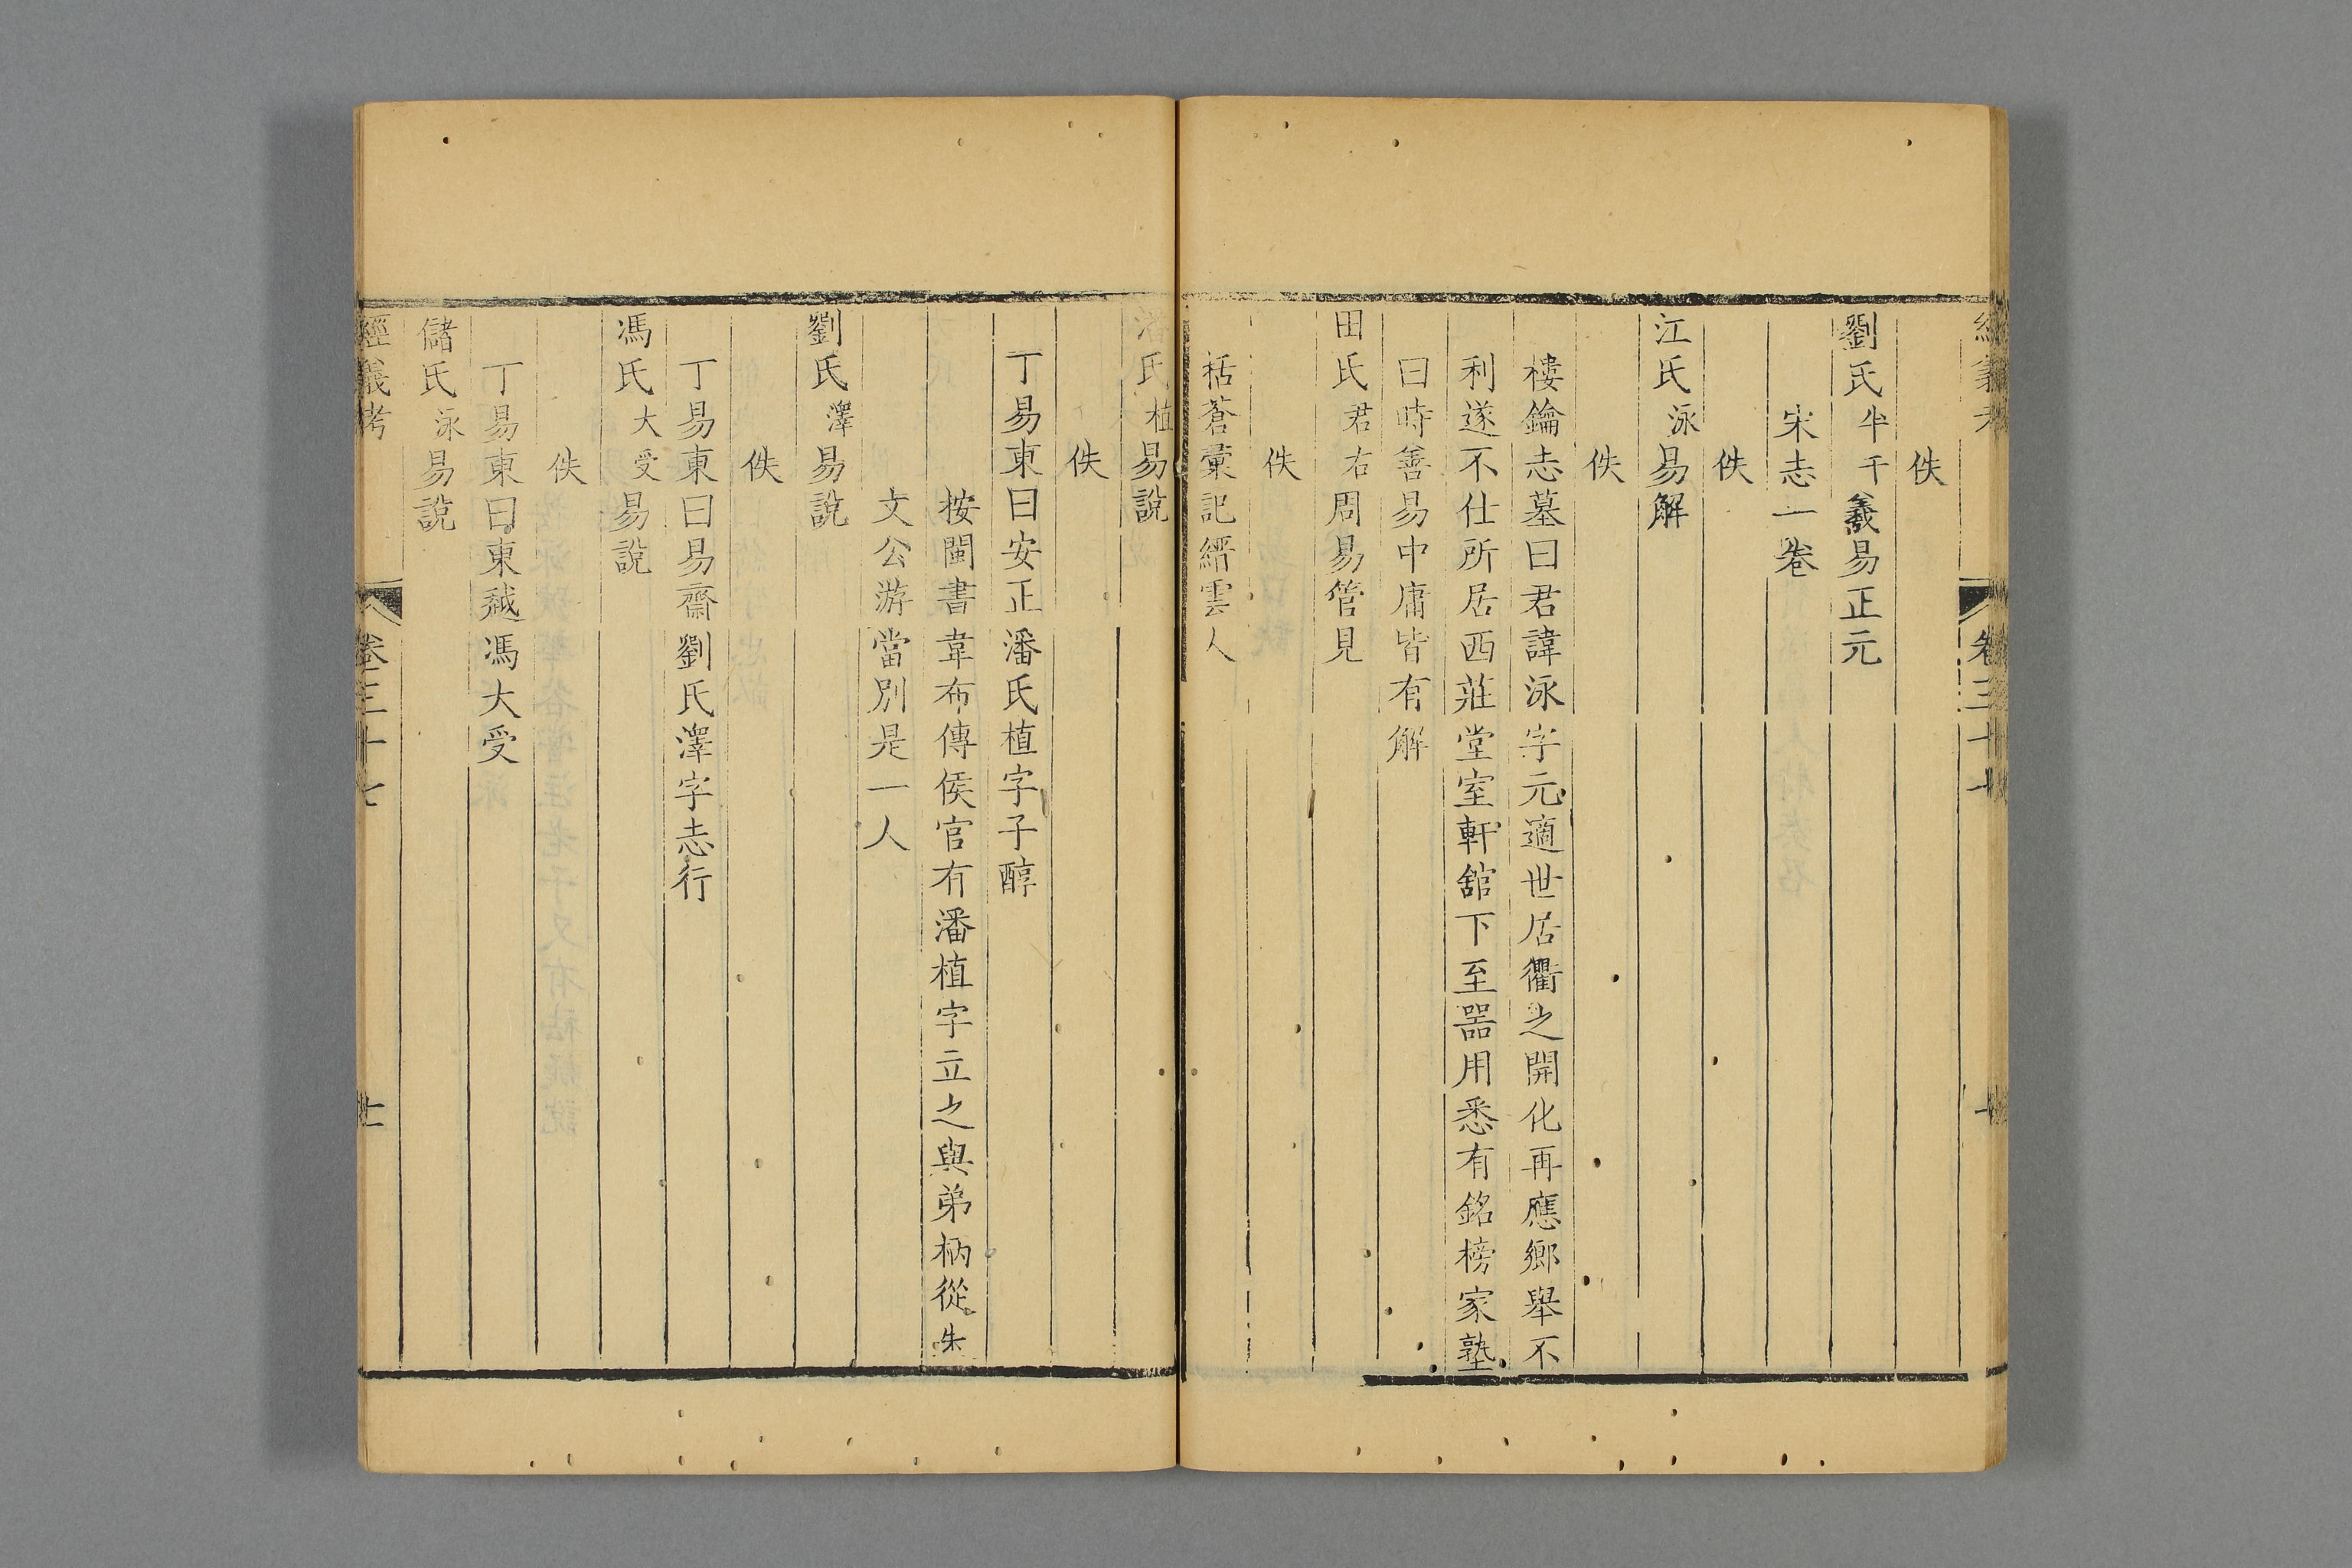 佚
劉氏半千羲易正元
宋志一卷
佚
江氏泳易解
佚
樓鑰志墓曰君諱泳字元適世居衢之開化再應鄉舉不
利遂不仕所居西莊堂室軒舘下至器用悉有銘榜家塾
曰時善易中庸皆有解
田氏君右周易管見
佚
括蒼彙記縉雲人
潘氏植易說
佚
丁易東曰安正潘氏植字子醇
按閩書韋布傳侯官有潘植字立之與弟柄從朱
文公游當別是一人
劉氏澤易說
佚
丁易東曰易齋劉氏澤字志行
馮氏大受易說
佚
丁易東曰東越馮大受
儲氏泳易說
經義考 卷三十七